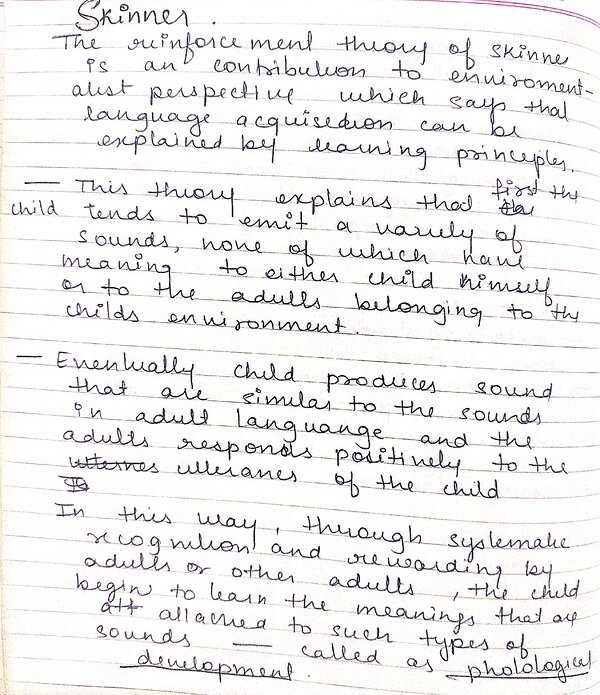 Skinner.
The reinforcement theory of skinne
is an contribution to enviroment-
alist perspective which says that
language acquisedion can be
explained by learning principles.
— This theory explains that first the
child tends to emit a variety of
sounds, none of which have
meaning to either child himself
or to the adults belonging to the
childs environment.
— Eventually child produces sound
that are similar to the sounds
in adult languange and the
adults responds positively to the
utternes utteranes of the child
In this way, through systematic
recognition and rewarding by
adults or other adults, the child
begin to learn the meanings that are
att attached to such types of
sounds — called as pholological
development.